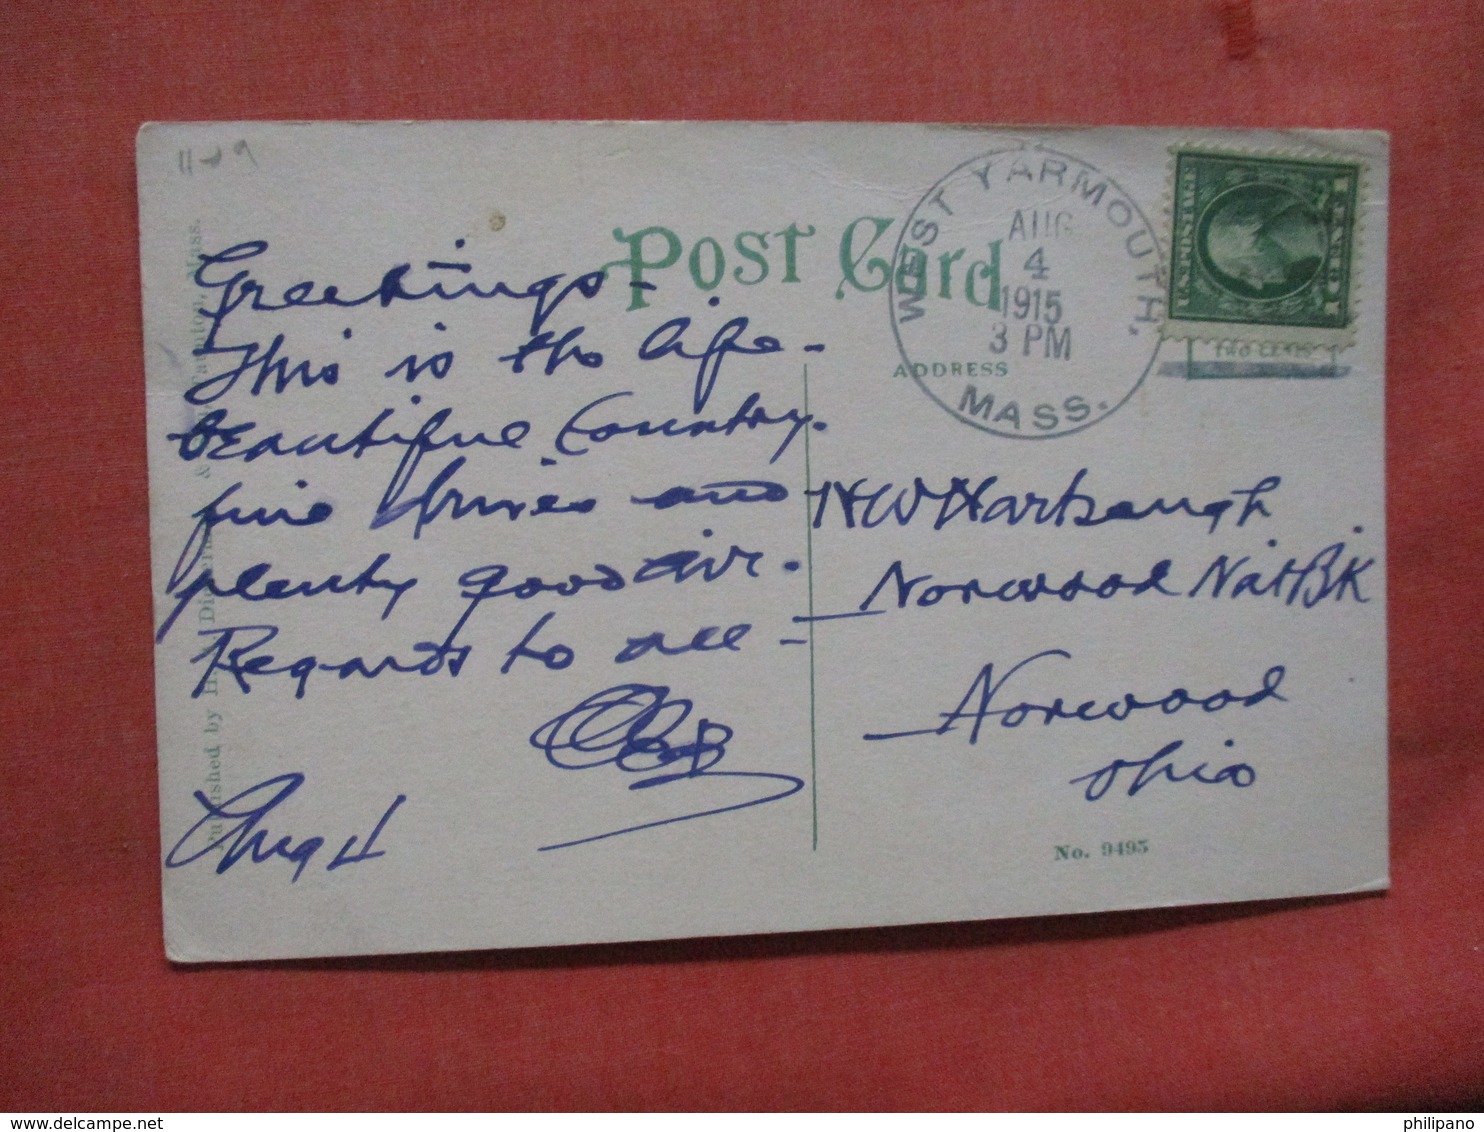 Post Card
WEST YARMOUTH,
AUG
4
1915
3 PM
MASS.
U.S. POSTAGE
1 CENT 1
TWO CENTS
ADDRESS
Greetings -
This is the life -
beautiful Country.
fine drives and
plenty good air.
Regards to all -
Aug 4
H W Harbaugh
Norwood Nat Bk
Norwood
Ohio
No. 9495
Published by H. A. Di & Taunton, Mass.
www.delcampe.net
philipano